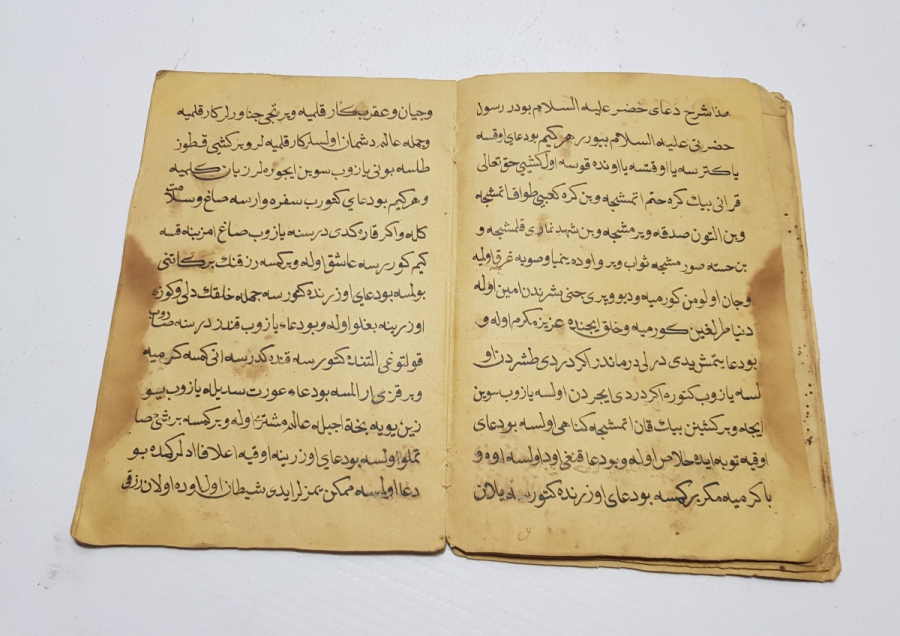 هذا شرح دعای حضر علیه السلام بودر رسول
حضرتی علیه السلام بیورر هر کیم بو دعای اوقسه
یا کتررسه یا اوقتسه یا اونده قوسه اول کشیی حق تعالی
قرانی بیك کره ختم اتمشجه وبن کره کعبیی طواف اتمشجه
وبن التون صدقه ویرمشجه وبن شهد نمازی قلمشجه و
بن حسته صورمشجه ثواب ویر و اوده ینمیا وصویه غرق اولمیه
وجان اولومن کورمیه ودیو وپری جنی شرندن امین اوله
دنیا طرلغین کورمیه وخلق ایجنده عزیز مکرم اوله و
بو دعا یتمش یدی درلی درماندر اکر دردی طشردن او
لسه یازوب کتوره اکر دردی ایجردن اولسه یازوب سوین
ایجه وبر کشینن بیك قان اتمشجه کناهی اولسه بو دعای
اوقیه توبه ایده خلاص اوله وبو دعا قنغی اوده اولسه اوه و
باکرمیه مکر بر کمسه بو دعای اوزرنده کتورسه ییلان
وجیان وعقرب کار قلمیه ویرتجی جناورلر کار قلمیه
وجمله عالم دشمان اولسلر کار قلمیه لر وبر کشیی قدوز
طلسه بونی یازوب سوین ایجوره لر زیان کلمیه
وهر کیم بو دعای کتورب سفره وارسه صاغ وسلامت
کله واکر قاره کدی درسنه یازوب صاغ امزینه قسه
کیم کوررسه عاشق اوله وبر کمسه رزقنك برکاتنی
بولمسه بو دعای اوزرنده کتورسه جمله خلقك دلی وکوزی
اوزرینه بغلو اوله وبو دعاء یازوب قندز درسنه صاروب
قولتوغی التنده کتورسه قنده کدرسه انی کمسه کرمیه
وبر قزی ار المسه بو دعاء عورت سدیله یازوب یو
زین یویه بختی اجیله عالم مشتری اوله وبر کمسه بر شی صا
تملو اولسه بو دعای اوزرینه اوقیه اعلا فادلر کمده بو
دعا اولسه ممکن یمزلر ایدی شیطان اول اوده اولان رزقی